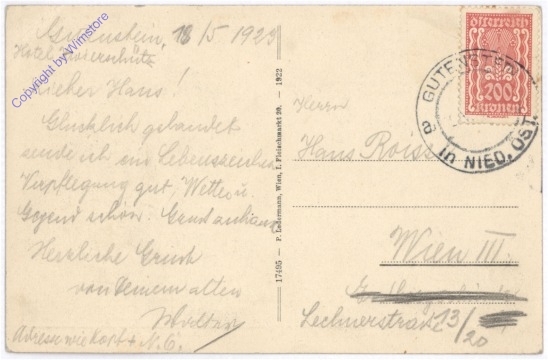 Gutenstein, 13/5 1923
Hotel
Lieber Hans!
Glücklich gelandet
sende ich ein Lebenszeichen
Verpflegung gut, Wetter u.
Gegend schön.
Herzliche Grüße
von Deinem alten
Adresse wie Kopf + N. Ö.
Copyright by Wimstore
17495 – P. Ledermann, Wien, I. Fleischmarkt 20. – 1922
Österreich
200
Kronen
GUTENSTEIN
a
in NIED. ÖST.
Herrn
Hans
Wien III.
Lechnerstraße 13/20